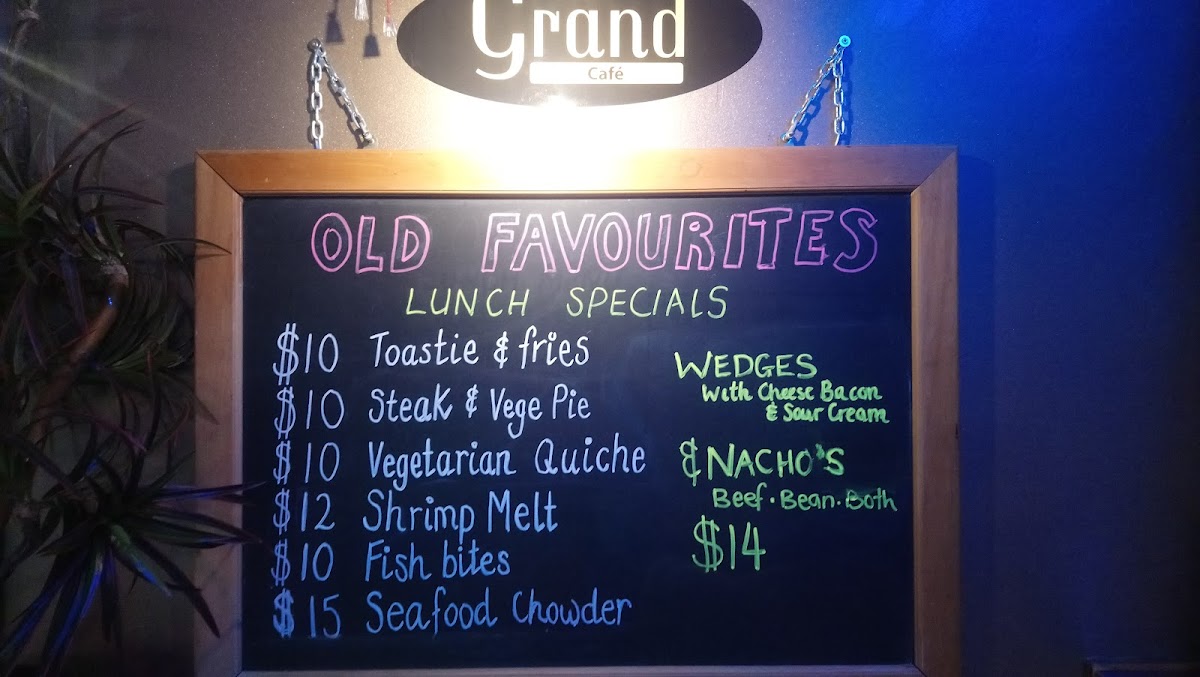 Grand
Café
OLD FAVOURITES
LUNCH SPECIALS
$10 Toastie & fries
$10 Steak & Vege Pie
$10 Vegetarian Quiche
$12 Shrimp Melt
$10 Fish bites
$15 Seafood Chowder
WEDGES
With Cheese Bacon
& Sour Cream
& NACHO'S
Beef · Bean · Both
$14